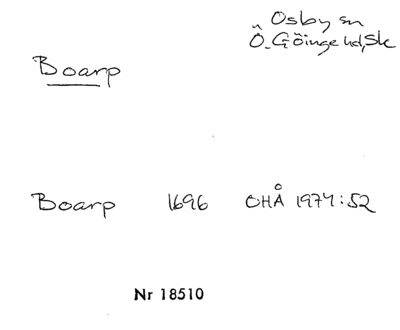 Osby sn
Ö. Göinge hd, Sk
Boarp
Boarp 1696 OHÅ 1974:52
Nr 18510